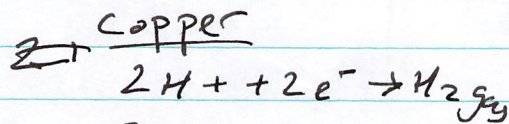 Copper
2H + + 2e⁻ → H₂ gas